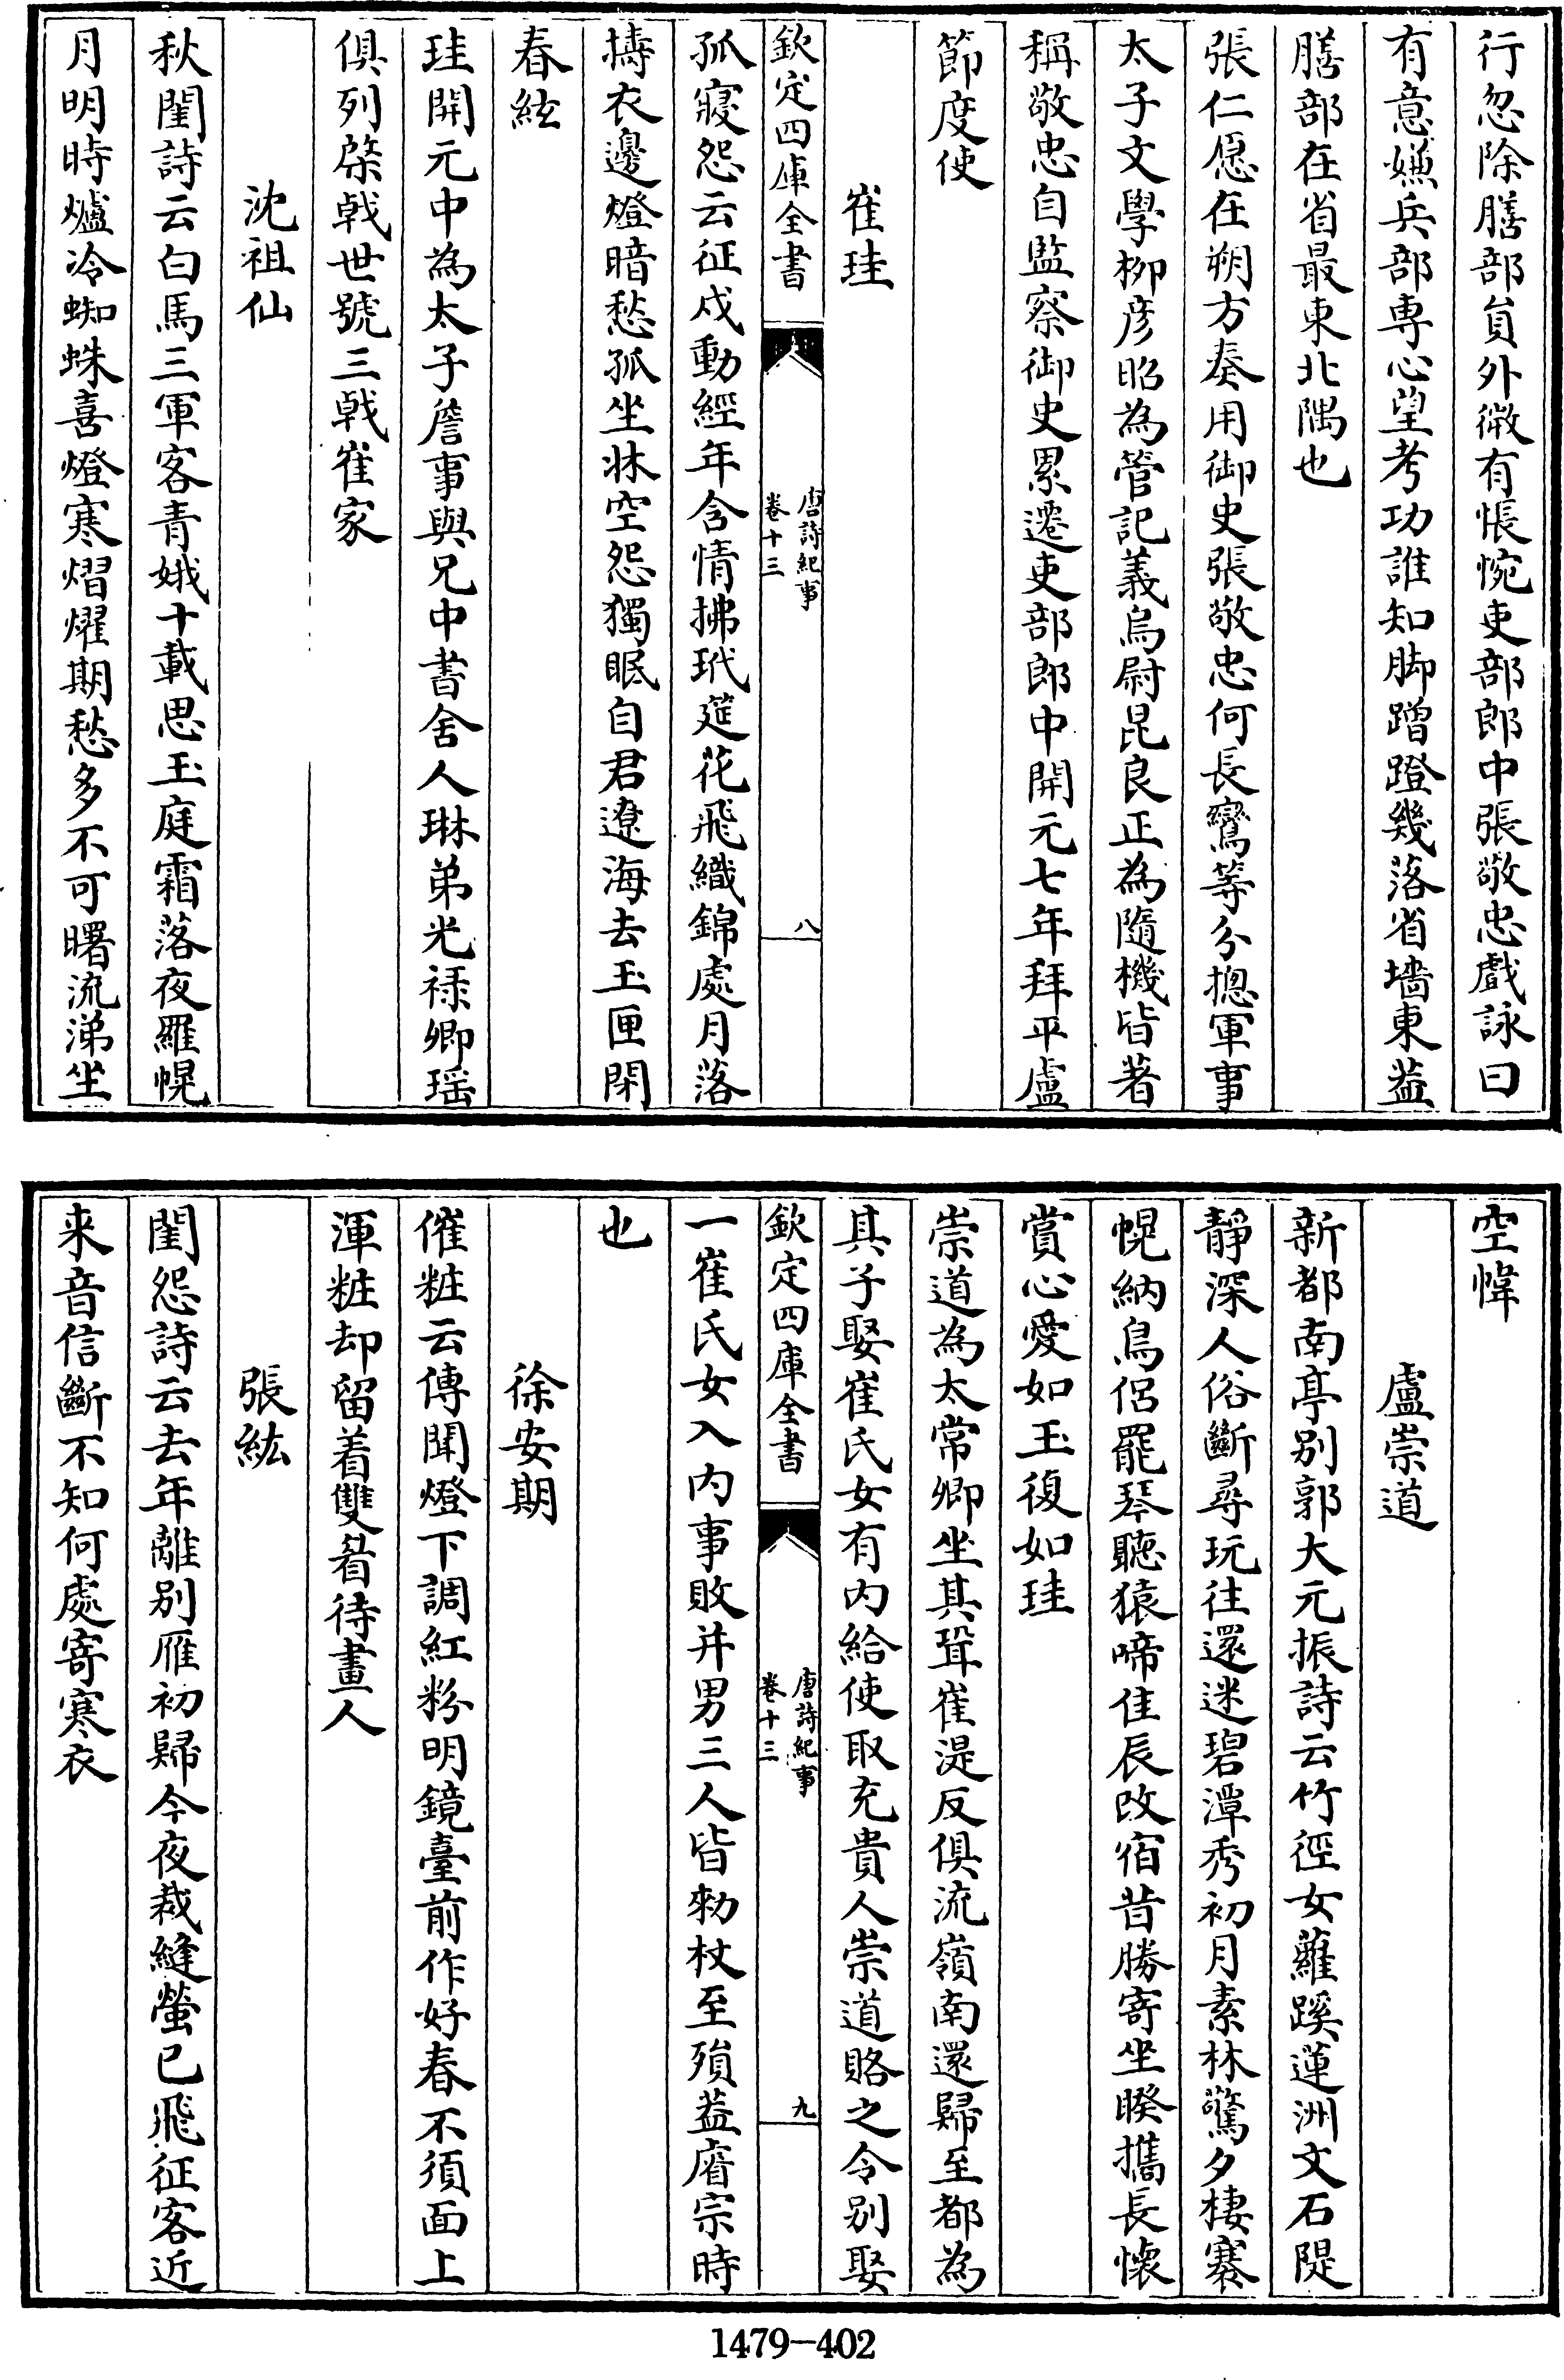 行忽除膳部員外微有悵惋吏部郎中張敬忠戲詠曰
有意嫌兵部専心望考功誰知脚蹭蹬幾落省墻東葢
膳部在省最東北隅也
張仁愿在朔方奏用御史張敬忠何長鸞等分摠軍事
太子文學柳彦昭為管記義烏尉昆良正為隨機皆著
稱敬忠自監察御史累遷吏部郎中開元七年拜平盧
節度使
崔珪
欽定四庫全書
唐詩紀事
卷十三
八
孤寢怨云征戍動經年含情拂玳筵花飛織錦處月落
擣衣邊燈暗愁孤坐牀空怨獨眠自君遼海去玉匣閉
春絃
珪開元中為太子詹事與兄中書舍人琳弟光祿卿瑶
俱列棨㦸世號三㦸崔家
沈祖仙
秋閨詩云白馬三軍客青娥十載思玉庭霜落夜羅幌
月明時爐冷蜘蛛喜燈寒熠燿期愁多不可曙流涕坐
空幃
盧崇道
新都南亭别郭大元振詩云竹徑女蘿蹊蓮洲文石隄
靜深人俗斷尋玩往還迷碧潭秀初月素林驚夕棲褰
幌納鳥侶罷琴聽猿啼佳辰改宿昔勝寄坐睽攜長懷
賞心愛如玉復如珪
崇道為太常卿坐其聟崔湜反俱流嶺南還歸至都為
其子娶崔氏女有内給使取充貴人崇道賂之令别娶
欽定四庫全書
唐詩紀事
卷十三
九
一崔氏女入内事敗并男三人皆勑杖至殞葢睿宗時
也
徐安期
催粧云傳聞燈下調紅粉明鏡臺前作好春不須面上
渾粧却留着雙眉待畫人
張紘
閨怨詩云去年離别雁初歸今夜裁縫螢已飛征客近
来音信斷不知何處寄寒衣
1479-402